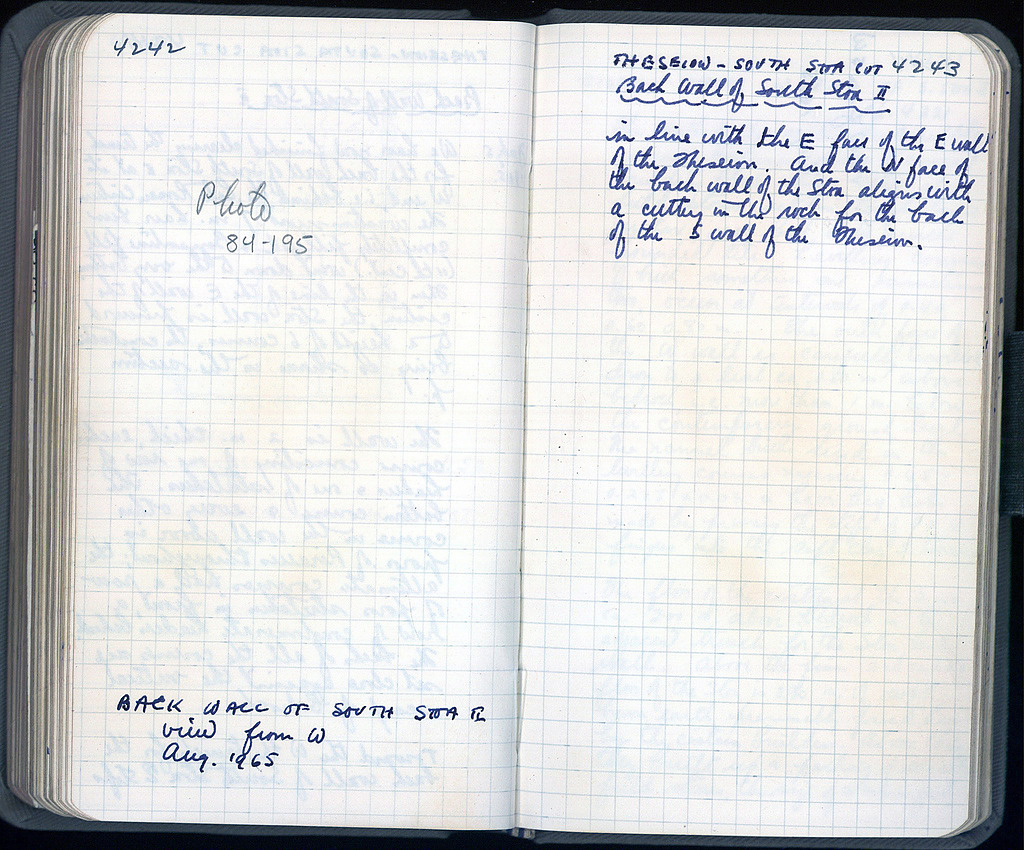 4242
Photo
84-195
BACK WALL OF SOUTH STOA II
view from W
Aug. 1965
THESEION - SOUTH STOA CUT 4243
Back Wall of South Stoa II
in line with the E face of the E wall
of the Theseion. And the W face of
the back wall of the Stoa aligns with
a cutting in the rock for the back
of the S wall of the Theseion.